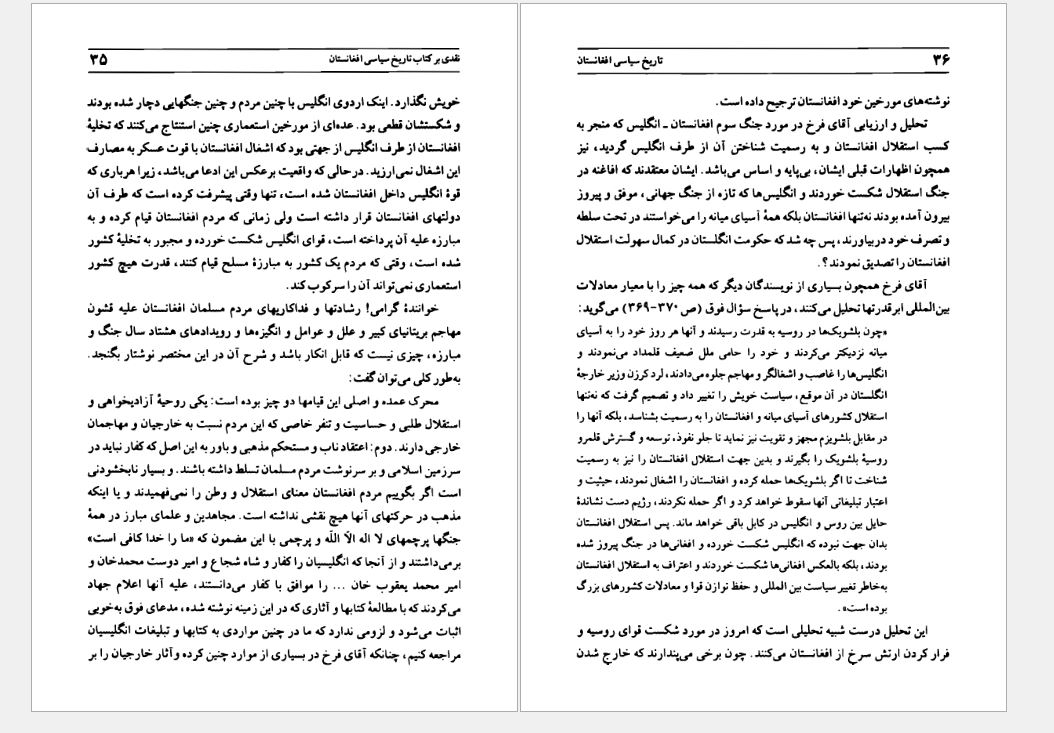 ۳۵ نقدی بر کتاب تاریخ سیاسی افغانستان
خویش نگذارد. اینک اردوی انگلیس با چنین مردم و چنین جنگهایی دچار شده بودند
و شکستشان قطعی بود. عده‌ای از مورخین استعماری چنین استنتاج می‌کنند که تخلیهٔ
افغانستان از طرف انگلیس از جهتی بود که اشغال افغانستان با قوت عسکر به مصارف
این اشغال نمی‌ارزید. درحالی که واقعیت برعکس این ادعا می‌باشد، زیرا هرباری که
قوهٔ انگلیس داخل افغانستان شده است، تنها وقتی پیشرفت کرده است که طرف آن
دولتهای افغانستان قرار داشته است ولی زمانی که مردم افغانستان قیام کرده و به
مبارزه علیه آن پرداخته است، قوای انگلیس شکست خورده و مجبور به تخلیهٔ کشور
شده است، وقتی که مردم یک کشور به مبارزهٔ مسلح قیام کنند، قدرت هیچ کشور
استعماری نمی‌تواند آن را سرکوب کند.
خوانندهٔ گرامی! رشادتها و فداکاریهای مردم مسلمان افغانستان علیه قشون
مهاجم بریتانیای کبیر و علل و عوامل و انگیزه‌ها و رویدادهای هشتاد سال جنگ و
مبارزه، چیزی نیست که قابل انکار باشد و شرح آن در این مختصر نوشتار بگنجد.
به‌طور کلی می‌توان گفت:
محرک عمده و اصلی این قیامها دو چیز بوده است: یکی روحیهٔ آزادیخواهی و
استقلال طلبی و حساسیت و تنفر خاصی که این مردم نسبت به خارجیان و مهاجمان
خارجی دارند. دوم: اعتقاد ناب و مستحکم مذهبی و باور به این اصل که کفار نباید در
سرزمین اسلامی و بر سرنوشت مردم مسلمان تسلط داشته باشند. و بسیار نابخشودنی
است اگر بگوییم مردم افغانستان معنای استقلال و وطن را نمی‌فهمیدند و یا اینکه
مذهب در حرکتهای آنها هیچ نقشی نداشته است. مجاهدین و علمای مبارز در همهٔ
جنگها پرچمهای لا اله الاّ اللّه و پرچمی با این مضمون که «ما را خدا کافی است»
برمی‌داشتند و از آنجا که انگلیسیان را کفار و شاه شجاع و امیر دوست محمدخان و
امیر محمد یعقوب خان ... را موافق با کفار می‌دانستند، علیه آنها اعلام جهاد
می‌کردند که با مطالعهٔ کتابها و آثاری که در این زمینه نوشته شده، مدعای فوق به‌خوبی
اثبات می‌شود و لزومی ندارد که ما در چنین مواردی به کتابها و تبلیغات انگلیسیان
مراجعه کنیم، چنانکه آقای فرخ در بسیاری از موارد چنین کرده و آثار خارجیان را بر
۳۶ تاریخ سیاسی افغانستان
نوشته‌های مورخین خود افغانستان ترجیح داده است.
تحلیل و ارزیابی آقای فرخ در مورد جنگ سوم افغانستان ـ انگلیس که منجر به
کسب استقلال افغانستان و به رسمیت شناختن آن از طرف انگلیس گردید، نیز
همچون اظهارات قبلی ایشان، بی‌پایه و اساس می‌باشد. ایشان معتقدند که افاغنه در
جنگ استقلال شکست خوردند و انگلیس‌ها که تازه از جنگ جهانی، موفق و پیروز
بیرون آمده بودند نه‌تنها افغانستان بلکه همهٔ آسیای میانه را می‌خواستند در تحت سلطه
و تصرف خود دربیاورند، پس چه شد که حکومت انگلستان در کمال سهولت استقلال
افغانستان را تصدیق نمودند؟.
آقای فرخ همچون بسیاری از نویسندگان دیگر که همه چیز را با معیار معادلات
بین‌المللی ابرقدرتها تحلیل می‌کنند، در پاسخ سؤال فوق (ص ۳۷۰-۳۶۹) می‌گوید:
«چون بلشویک‌ها در روسیه به قدرت رسیدند و آنها هر روز خود را به آسیای
میانه نزدیکتر می‌کردند و خود را حامی ملل ضعیف قلمداد می‌نمودند و
انگلیس‌ها را غاصب و اشغالگر و مهاجم جلوه می‌دادند، لرد کرزن وزیر خارجهٔ
انگلستان در آن موقع، سیاست خویش را تغییر داد و تصمیم گرفت که نه‌تنها
استقلال کشورهای آسیای میانه و افغانستان را به رسمیت بشناسد، بلکه آنها را
در مقابل بلشویزم مجهز و تقویت نیز نماید تا جلو نفوذ، توسعه و گسترش قلمرو
روسیهٔ بلشویک را بگیرند و بدین جهت استقلال افغانستان را نیز به رسمیت
شناخت تا اگر بلشویک‌ها حمله کرده و افغانستان را اشغال نمودند، حیثیت و
اعتبار تبلیغاتی آنها سقوط خواهد کرد و اگر حمله نکردند، رژیم دست نشاندهٔ
حایل بین روس و انگلیس در کابل باقی خواهد ماند. پس استقلال افغانستان
بدان جهت نبوده که انگلیس شکست خورده و افغانی‌ها در جنگ پیروز شده
بودند، بلکه بالعکس افغانی‌ها شکست خوردند و اعتراف به استقلال افغانستان
به‌خاطر تغییر سیاست بین المللی و حفظ توازن قوا و معادلات کشورهای بزرگ
بوده است».
این تحلیل درست شبیه تحلیلی است که امروز در مورد شکست قوای روسیه و
فرار کردن ارتش سرخ از افغانستان می‌کنند. چون برخی می‌پندارند که خارج شدن